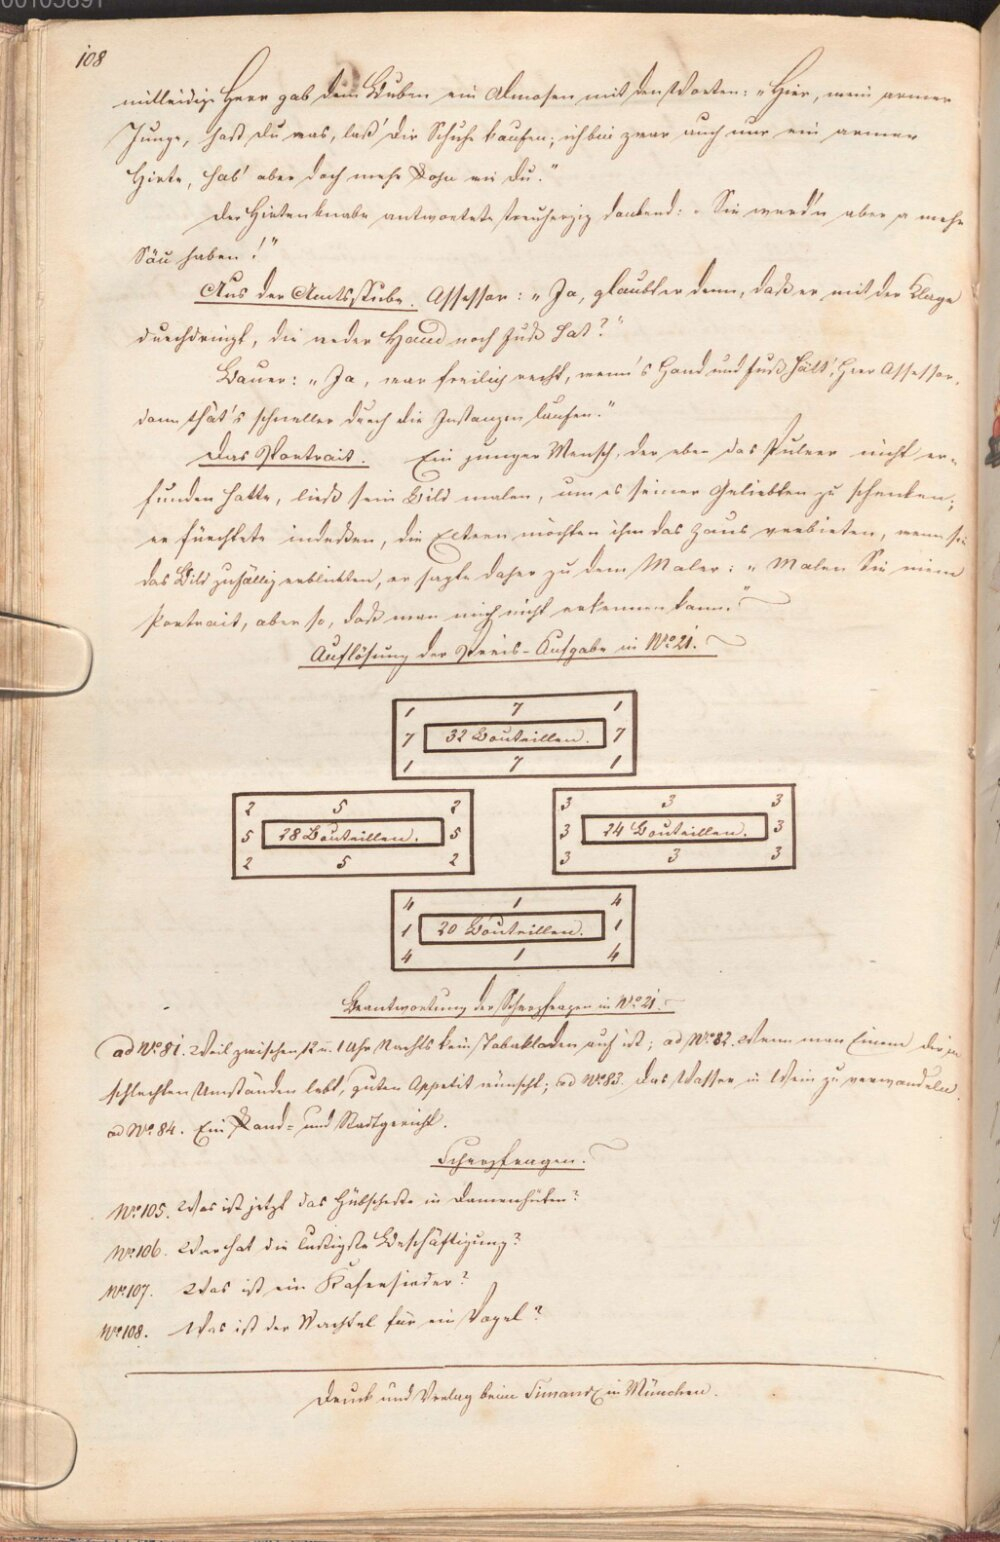 00105891
108
mitleidige Herr gab dem Buben ein Almosen mit den Worten: „Hier, mein armer
Junge, hast du was, laß' dir Schuhe kaufen; ich bin zwar auch nur ein armer
Hirte, hab' aber doch mehr Lohn wie du."
Der Hirtenknabe antwortete treuherzig dankend: „Sie werd'n aber a mehr
Säu haben!"
Aus der Amtsstube. Assessor: „Ja, glaubt er denn, daß er mit der Klage
durchdringt, die weder Hand noch Fuß hat?"
Bauer: „Ja, wär freilich recht, wenn's Hand und Fuß hätt', Herr Assessor,
dann thät's schneller durch die Instanzen laufen."
Das Portrait. Ein junger Mensch, der eben das Pulver nicht er-
funden hatte, ließ sein Bild malen, um es seiner Geliebten zu schenken;
er fürchtete indeßen, die Eltern möchten ihm das Haus verbieten, wenn sie
das Bild zufällig erblickten, er sagte daher zu dem Maler: „Malen Sie mein
Portrait, aber so, daß man mich nicht erkennen kann."
Auflösung der Preis-Aufgabe in No 21.
1 7 1
7 32 Bouteillen. 7
1 7 1
2 5 2
5 28 Bouteillen. 5
2 5 2
3 3 3
3 24 Bouteillen. 3
3 3 3
4 1 4
1 20 Bouteillen. 1
4 1 4
Beantwortung der Scherzfragen in No 21.
ad No 81. Weil zwischen 12 u. 1 Uhr Nachts kein Tabakladen auf ist; ad No 82. Wenn man Einem der in
schlechten Umständen lebt, guten Appetit wünscht; ad No 83. Das Wasser in Wein zu verwandeln.
ad No 84. Ein Land- und Stadtgericht.
Scherzfragen.
No 105. Was ist jetzt das Hübscheste in Damenhüten?
No 106. Wer hat die lustigste Beschäftigung?
No 107. Was ist ein Kafesieder?
No 108. Was ist der Wachtel für ein Vogel?
Druck und Verlag beim in München.